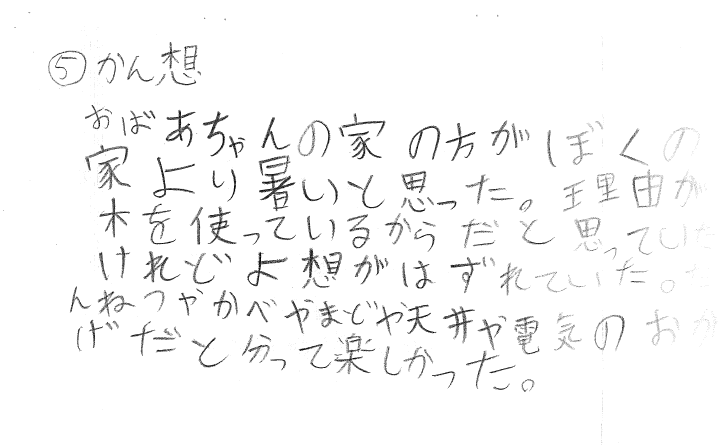 ⑤かん想
おばあちゃんの家の方がぼくの
家より暑いと思った。理由が
木を使っているからだと思っていた
けれどよ想がはずれていた。だ
んねつやかべやまどや天井や電気のおか
げだと分って楽しかった。